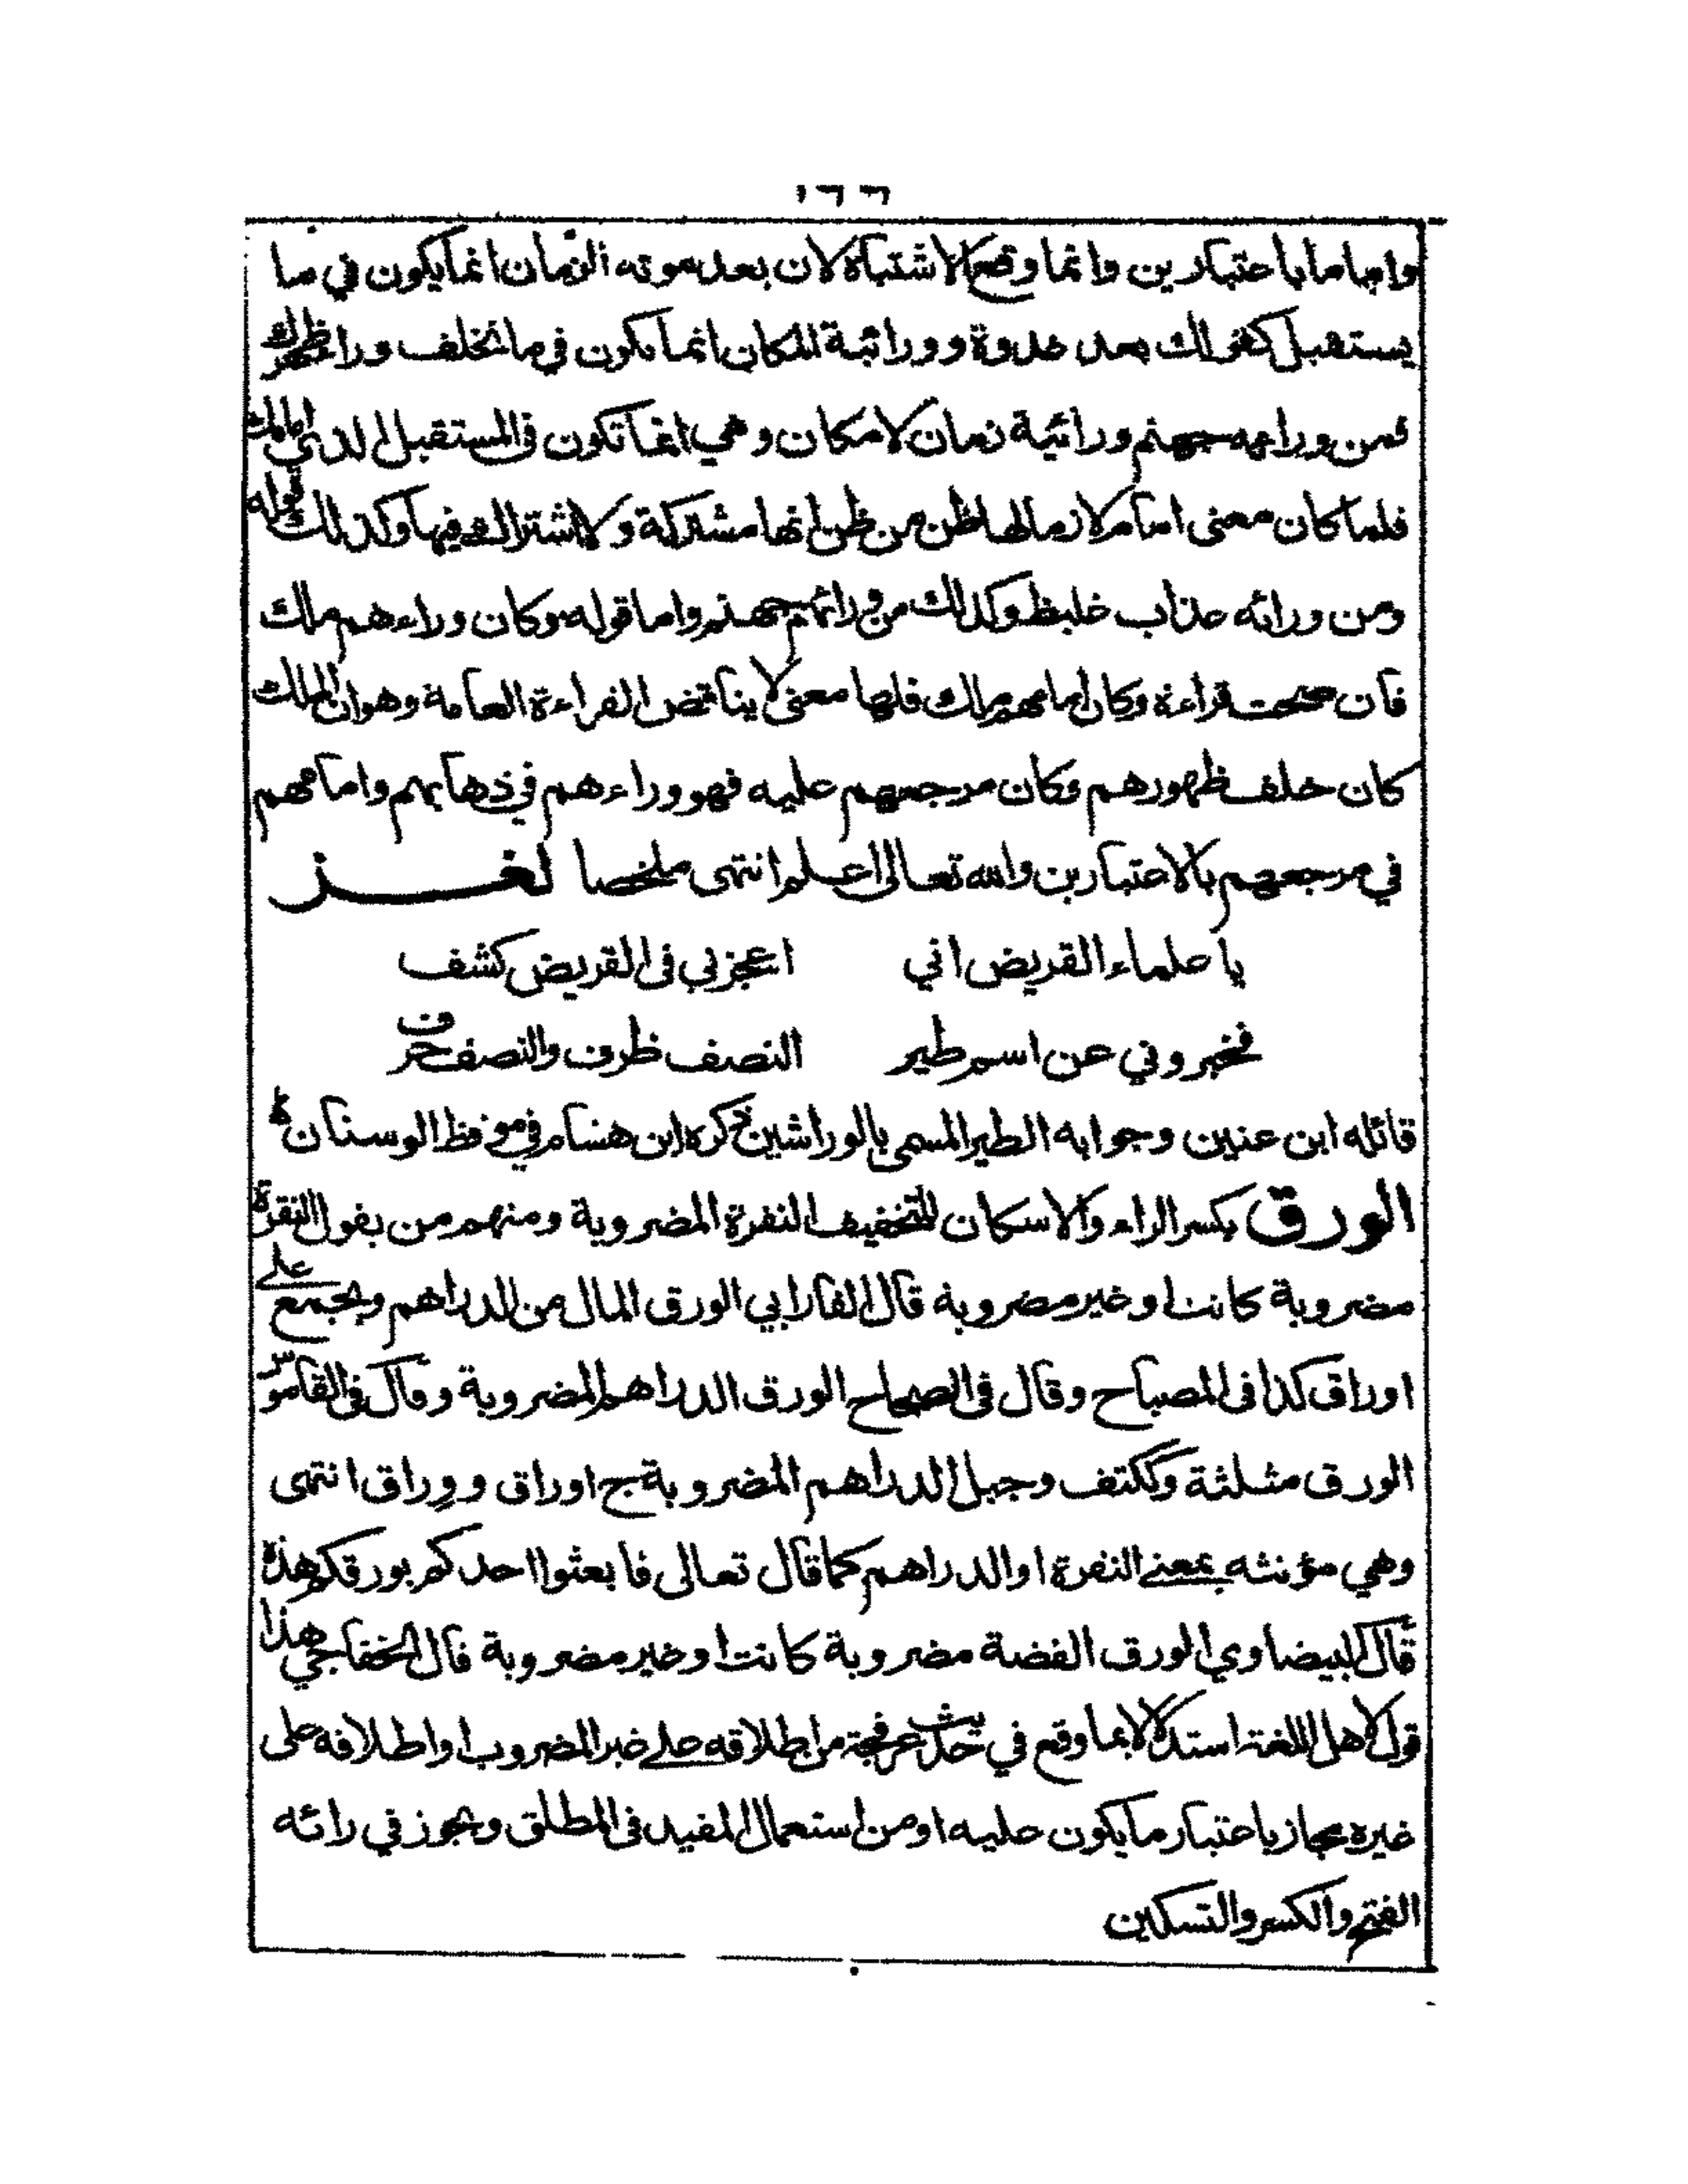 ١٦٦
واماما باعتبارين وانما وقع الاشتباه لان بعدموته الزمان انما يكون في ما
يستقبل كقولك بعد غدوة وورائية المكان انما تكون في ما تخلف وراء ظهرك
فمن ورائه جهنم ورائية زمان لا مكان وهي انما تكون في المستقبل الذي امامك
فلما كان معنى امام لازما لها ظن من ظن انها مشتركة ولا اشتراك فيها وكذلك قوله
ومن ورائه عذاب غليظ وكذلك من ورائهم جهنم واما قوله وكان وراءهم ملك
فان صحت قراءة وكان امامهم ملك فلها معنى لا يناقض القراءة العامة وهو ان الملك
كان خلف ظهورهم وكان مرجعهم عليه فهو وراءهم في ذهابهم وامامهم
في مرجعهم بالاعتبارين والله تعالى اعلم انتهى ملخصا لغز
يا علماء القريض اني اعجزني في القريض كشف
فخبروني عن اسم طير النصف ظرف والنصف حرف
قائله ابن عنين وجوابه الطير المسمى بالوراشين ذكره ابن هشام في موقظ الوسنان
الورق بكسر الراء والاسكان للتخفيف النقرة المضروبة ومنهم من يقول النقرة
مضروبة كانت او غير مضروبة قال الفارابي الورق المال من الدراهم ويجمع على
اوراق كذا في المصباح وقال في الصحاح الورق الدراهم المضروبة وقال في القاموس
الورق مثلثة وككتف وجبل الدراهم المضروبة ج اوراق ووراق انتهى
وهي مؤنثه بمعنى النقرة او الدراهم كما قال تعالى فابعثوا احدكم بورقكم هذه
قال البيضاوي الورق الفضة مضروبة كانت او غير مضروبة قال الخفاجي هذا
قول لاهل اللغة استدلالا بما وقع في حديث عرفجة من اطلاقه على غير المضروب او اطلاقه على
غيره مجاز باعتبار ما يكون عليه او من استعمال المقيد في المطلق ويجوز في رائه
الفتح والكسر والتسكين